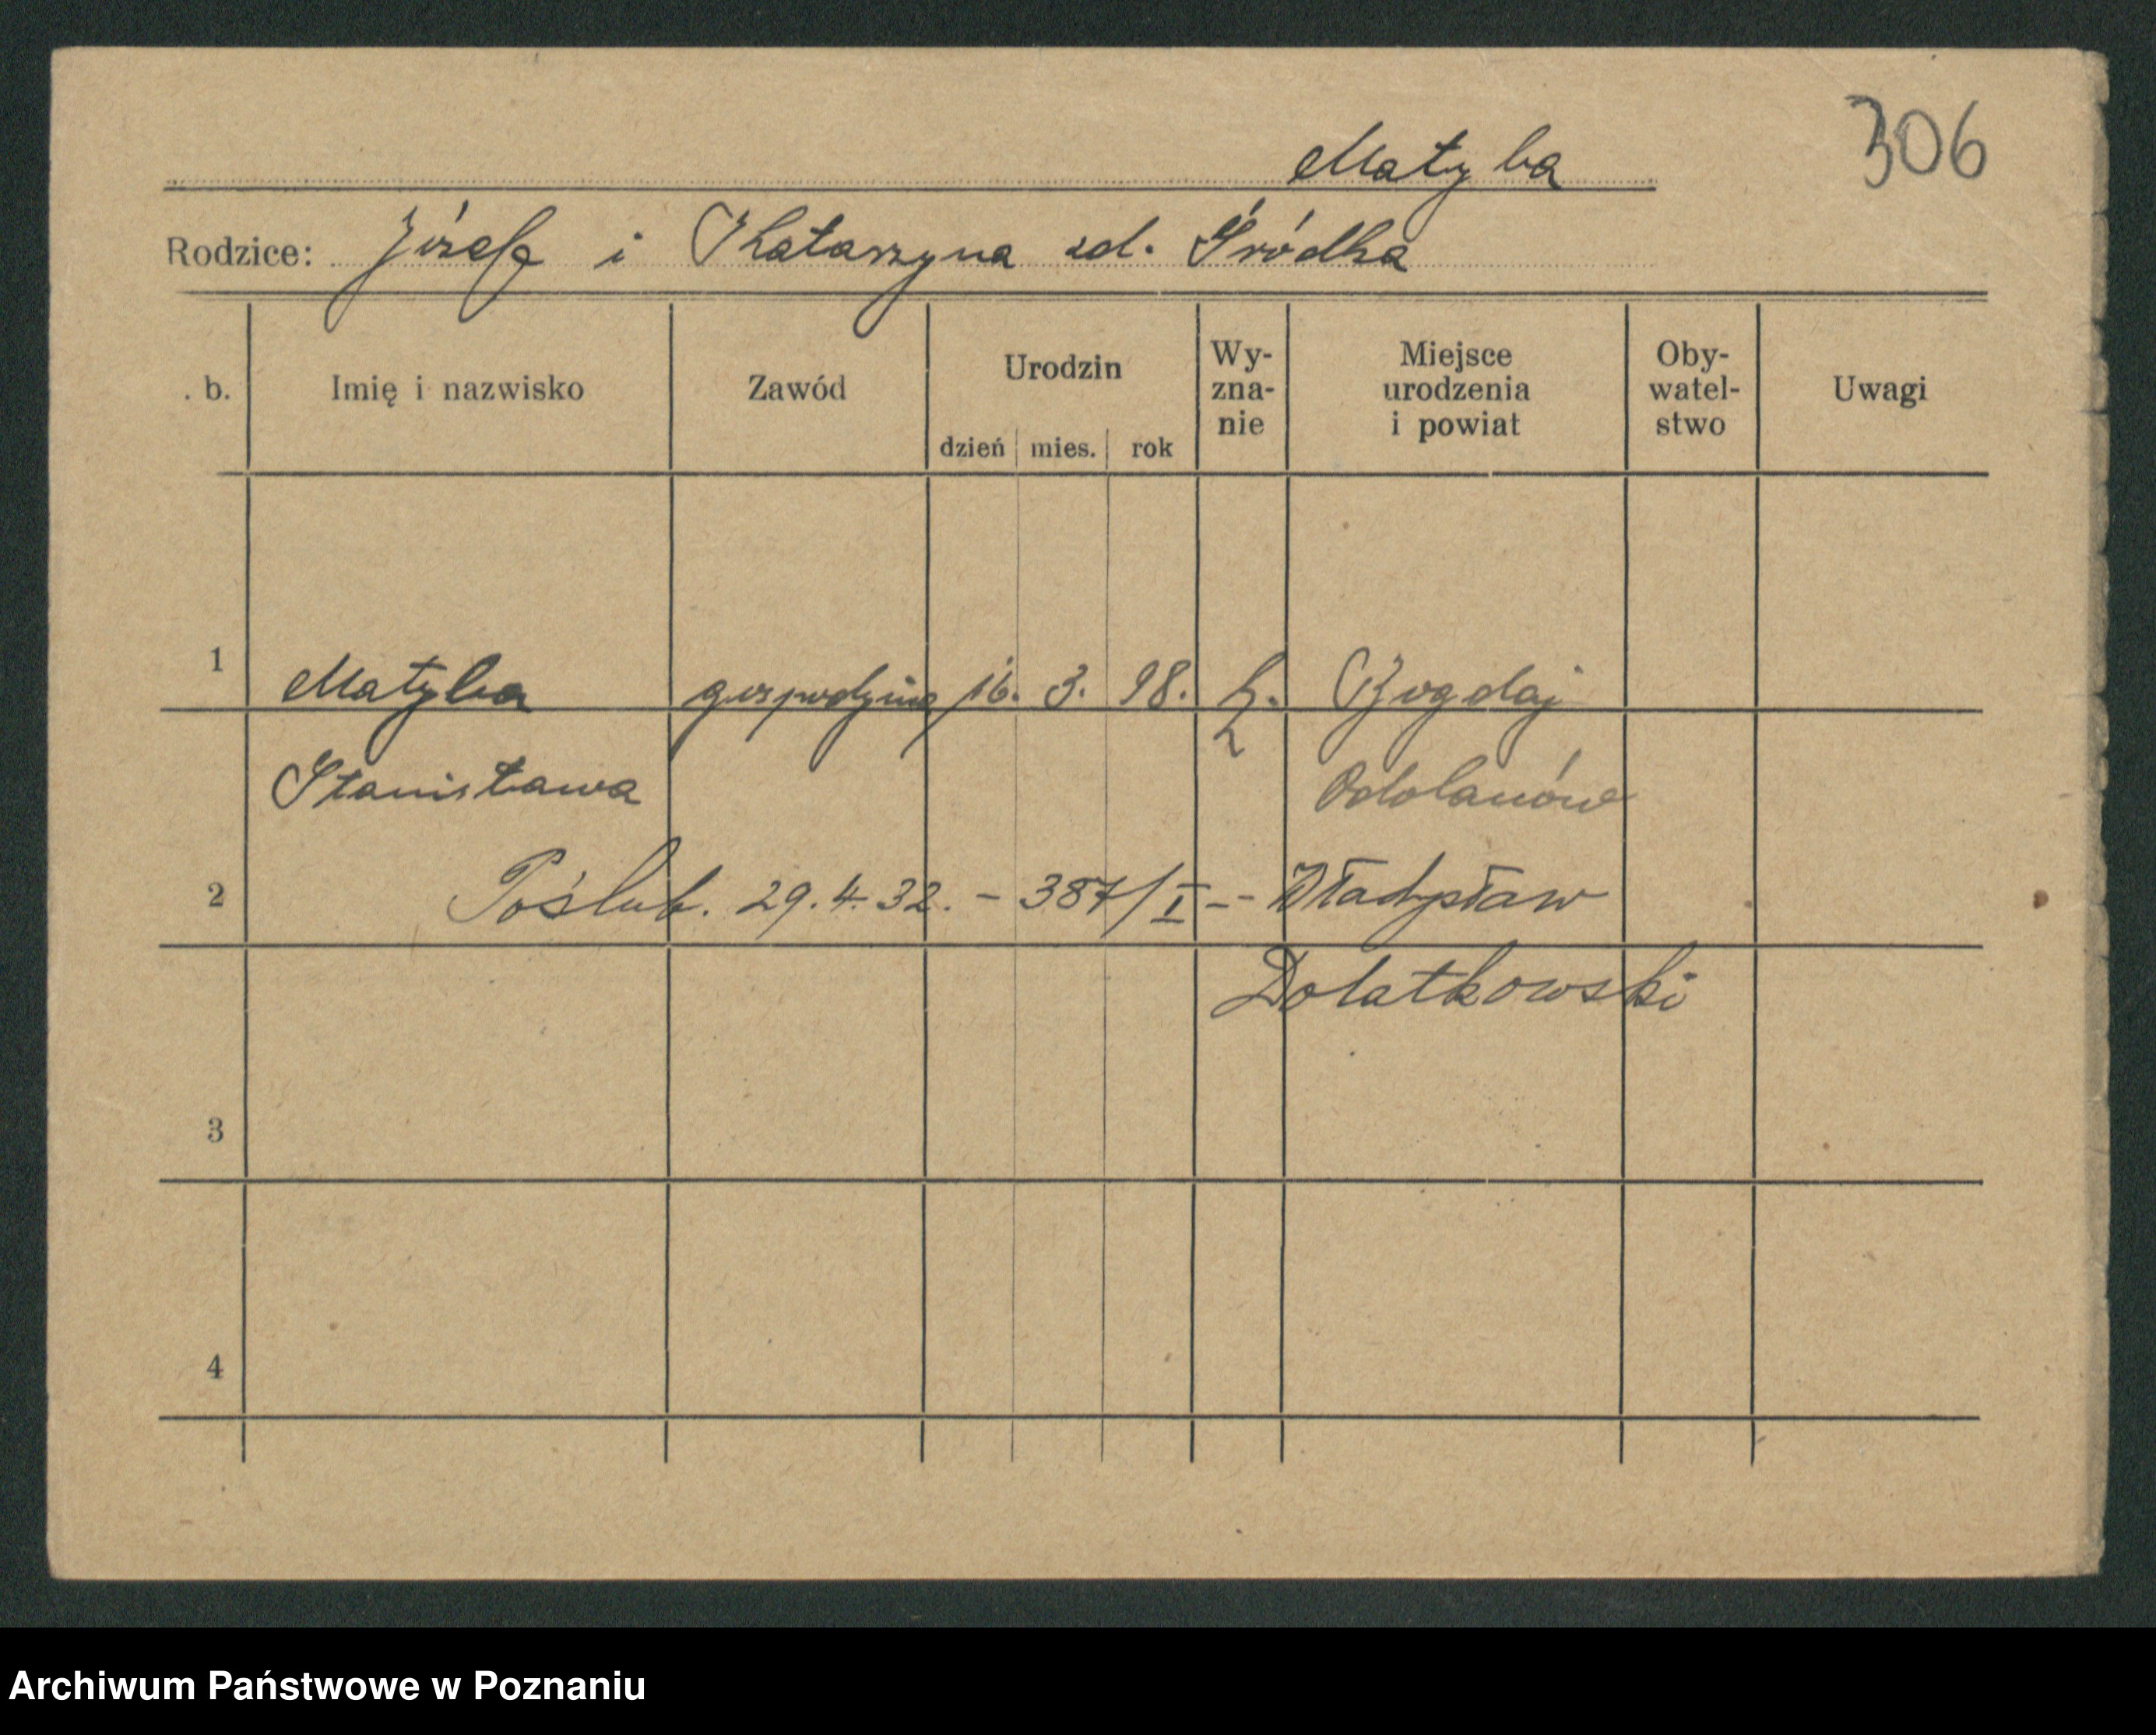 306
Matyba
Rodzice: Józef i Katarzyna zd. Śródka
. b. Imię i nazwisko Zawód Urodzin dzień mies. rok Wy-zna-nie Miejsce urodzenia i powiat Oby-watel-stwo Uwagi
1 Matyba gospodyni 16. 3. 98. Bogdaj
Stanisława Odolanów
2 Poślub. 29.4.32. - 387/I -- Władysław
Dolatkowski
3
4
Archiwum Państwowe w Poznaniu